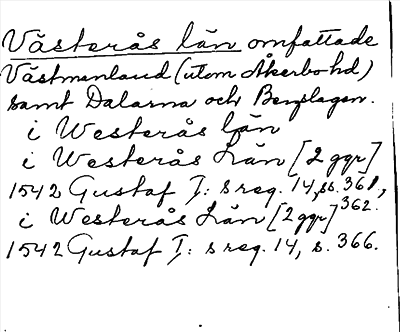 Västerås län omfattade
Västmanland (utom Åkerbo hd)
samt Dalarna och Bergslagen.
i Westerås län
i Westerås Län [2 ggr]
1542 Gustaf I: s reg. 14, ss. 361,
362.
i Westerås Län [2 ggr]
1542 Gustaf I: s reg. 14, s. 366.